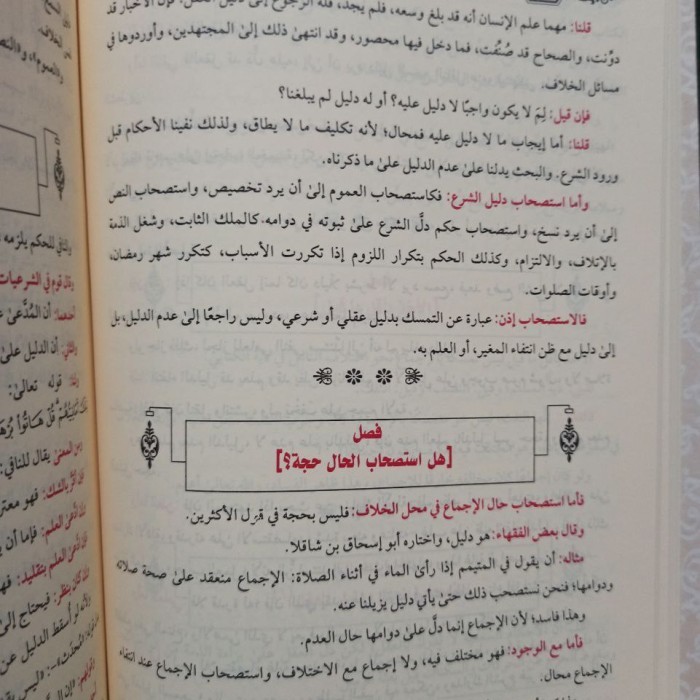 قلنا: مهما علم الإنسان أنه قد بلغ وسعه، فلم يجد، فله الرجوع إلى
دوّنت، والصحاح قد صُنِّفت، فما دخل فيها محصور، وقد انتهىٰ ذلك إلى المجتهدين، وأوردوها في
مسائل الخلاف.
فإن قيل: لِمَ لا يكون واجبًا لا دليل عليه؟ أو له دليل لم يبلغنا؟
قلنا: أما إيجاب ما لا دليل عليه فمحال؛ لأنه تكليف ما لا يطاق، ولذلك نفينا الأحكام قبل
ورود الشرع. والبحث يدلنا علىٰ عدم الدليل علىٰ ما ذكرناه.
وأما استصحاب دليل الشرع: فكاستصحاب العموم إلىٰ أن يرد تخصيص، واستصحاب النص
إلىٰ أن يرد نسخ، واستصحاب حكم دلَّ الشرع علىٰ ثبوته في دوامه. كالملك الثابت، وشغل الذمة
بالإتلاف، والالتزام، وكذلك الحكم بتكرار اللزوم إذا تكررت الأسباب، كتكرر شهر رمضان،
وأوقات الصلوات.
فالاستصحاب إذن: عبارة عن التمسك بدليل عقلي أو شرعي، وليس راجعًا إلىٰ عدم الدليل، بل
إلىٰ دليل مع ظن انتفاء المغير، أو العلم به.
فصل
[هل استصحاب الحال حجة؟]
فأما استصحاب حال الإجماع في محل الخلاف: فليس بحجة في قول الأكثرين.
وقال بعض الفقهاء: هو دليل، واختاره أبو إسحاق بن شاقلا.
مثاله: أن يقول في المتيمم إذا رأىٰ الماء في أثناء الصلاة: الإجماع منعقد علىٰ صحة صلاته
ودوامها؛ فنحن نستصحب ذلك حتىٰ يأتي دليل يزيلنا عنه.
وهذا فاسد؛ لأن الإجماع إنما دلَّ علىٰ دوامها حال العدم.
فأما مع الوجود: فهو مختلف فيه، ولا إجماع مع الاختلاف، واستصحاب الإجماع عند انتفاء
الإجماع محال.
الخلاف.
والنافي للحكم يلزمه
وقال قوم في الشرعيات
أن المُدَّعىٰ
أن الدليل علىٰ
قوله تعالىٰ:
قُلْ هَاتُوا
يقال للنافي:
فهو معتر
فإما أن
فيحتاج إلىٰ
لو أسقط الدليل عن